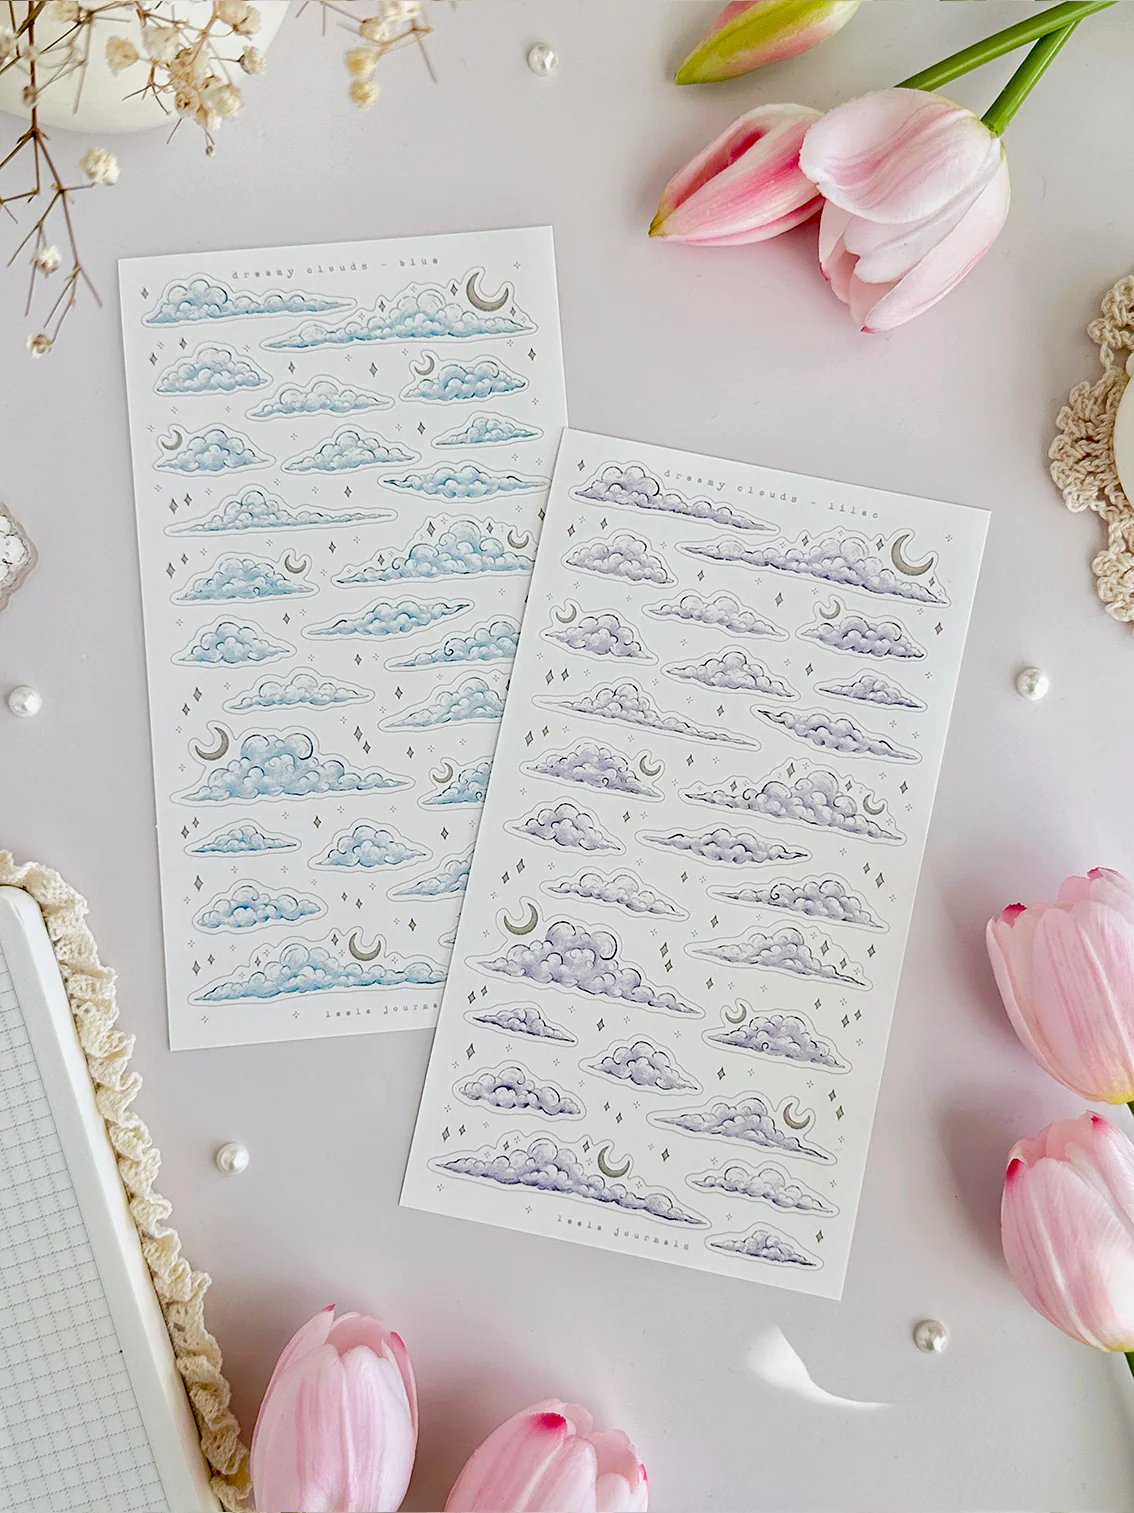 dreamy clouds - blue
leela journa
dreamy clouds - lilac
leela journals